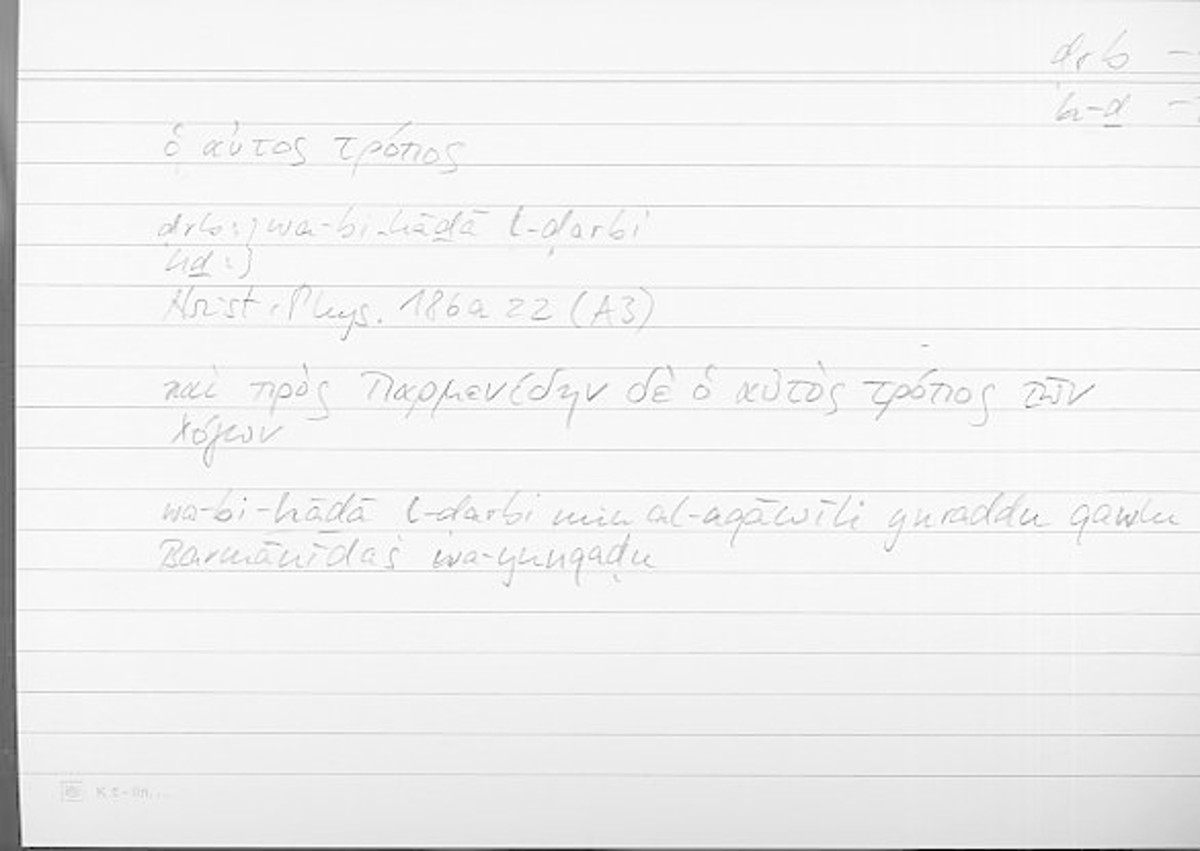 ḍrb –
h-ḏ –
ὁ αὐτος τρόπος
ḍrb:} wa-bi-hāḏā l-ḍarbi
hḏ:}
Arist. Phys. 186a 22 (A3)
καὶ πρὸς Παρμενίδην δὲ ὁ αὐτὸς τρόπος τῶν
λόγων
wa-bi-hāḏā l-ḍarbi min al-aqāwīli yuraddu qawlu
Barmānīdas wa-yunqaḍu